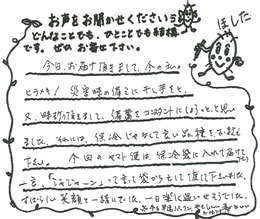 お声をお聞かせください
どんなことでも、ひとことでも結構
です。ぜひお寄せ下さい。
ほした
今日、お届け頂きまして、今の
ヒラメキ! 災害時の備えに干し芋をと
又、時折頂きまして、備蓄をコンスタントにしようっと、と思い
ました。それには、保冷じゃなくて良い品種をお
下さい。 今回のヤマト便は、保冷袋に入れて届けて
一言、「ジャジャーン」って袋から出して渡して下さいました。
すばらしい笑顔と一緒でした。一日楽に過ごせそうでした。